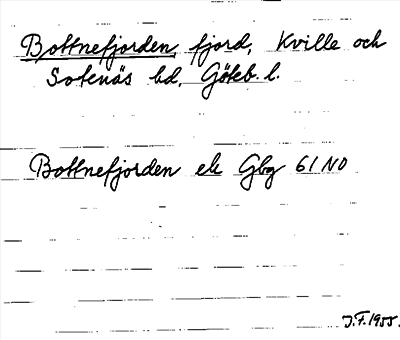 Bottnefjorden, fjord, Kville och
Sotenäs hd, Göteb. l.
Bottnefjorden ek Gbg 61 NO
J.F. 1955.